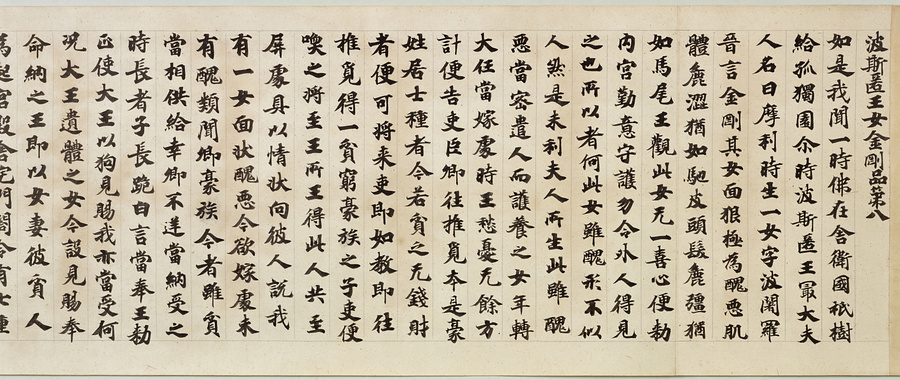 波斯匿王女金剛品第八
如是我聞一時佛在舍衛國祇樹
給孤獨園尒時波斯匿王冣大夫
人名曰摩利時生一女字波闍羅
晉言金剛其女面狠極為醜惡肌
體麁澀猶如駞皮頭髮麁彊猶
如馬尾王觀此女无一喜心便勑
内宮勤意守護勿令外人得見
之也所以者何此女雖醜形不似
人然是末利夫人所生此雖醜
惡當密遣人而護養之女年轉
大任當嫁處時王愁憂无餘方
計便告吏臣卿往推覓本是豪
姓居士種者今若貧之无錢財
者便可將来吏即如教即往
推覓得一貧窮豪族之子吏便
喚之將至王所王得此人共至
屏處具以情狀向彼人說我
有一女面狀醜惡今欲嫁處未
有醜類聞卿豪族今者雖貧
當相供給幸卿不逆當納受之
時長者子長跪白言當奉王勑
正使大王以狗見賜我亦當受何
况大王遺體之女今設見賜奉
命納之王即以女妻彼貧人
為起宮殿舍宅門閤令有七重